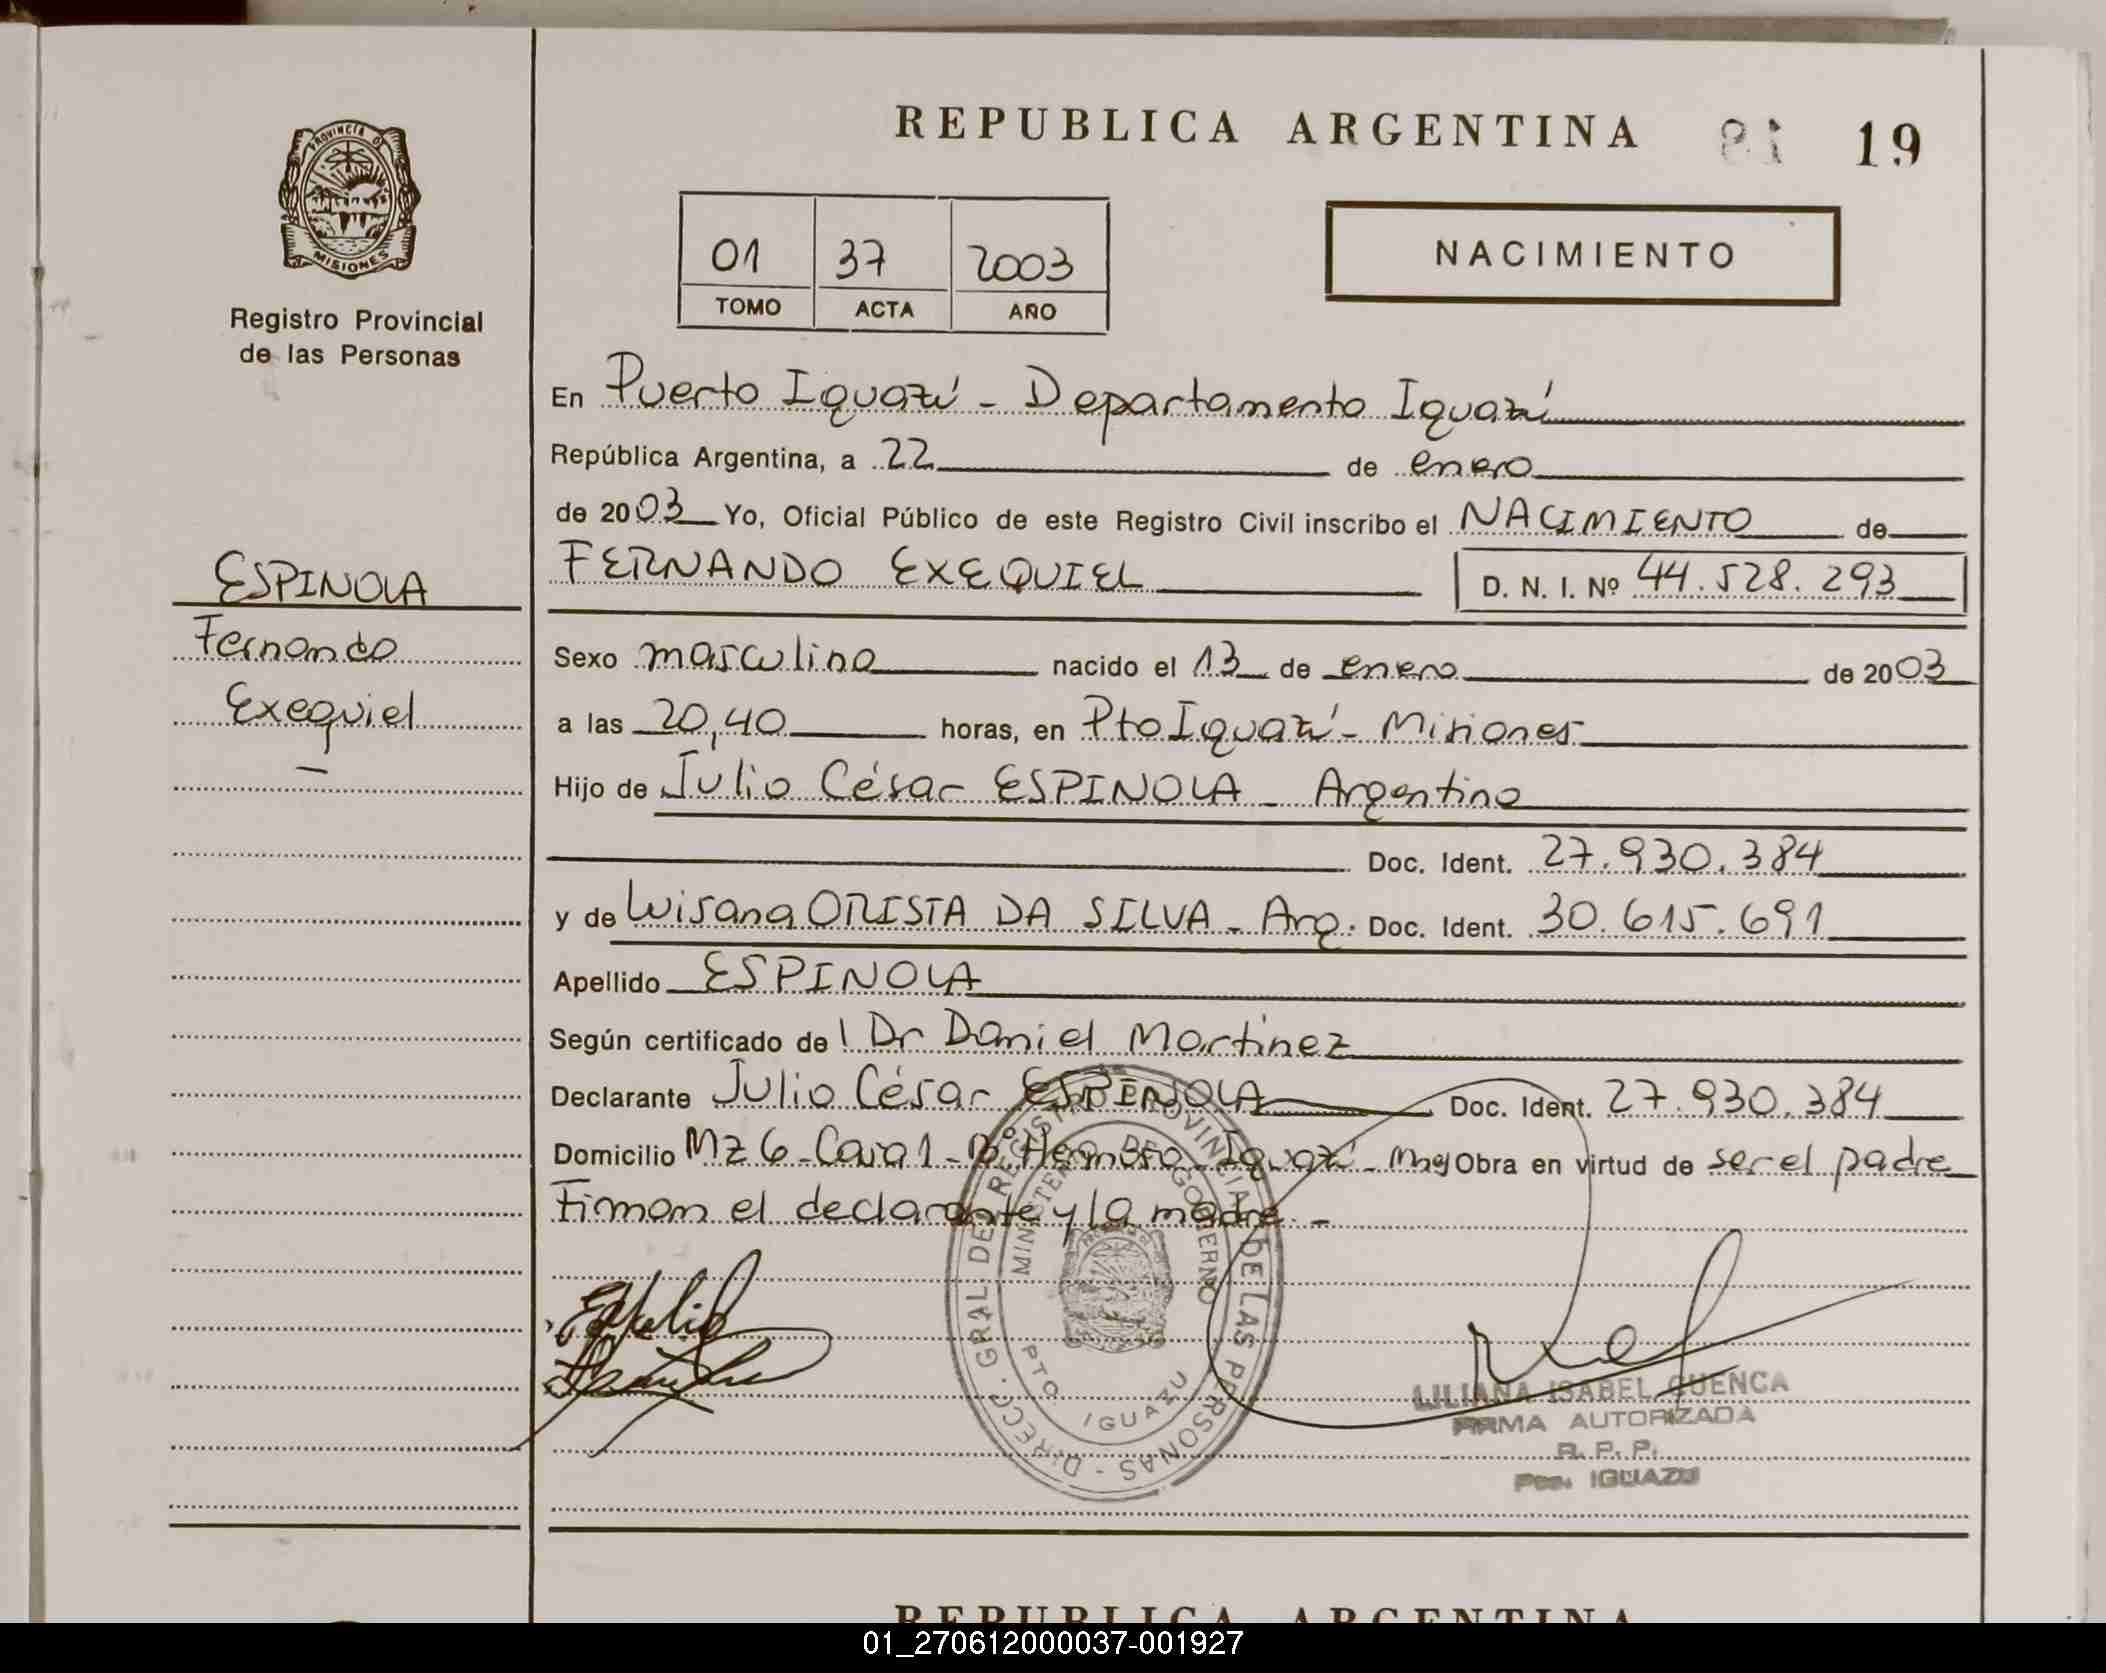 REPUBLICA ARGENTINA 19
PROVINCIA D
MISIONES
Registro Provincial
de las Personas
01 37 2003
TOMO ACTA AÑO
NACIMIENTO
En Puerto Iguazú - Departamento Iguazú
República Argentina, a 22 de enero
de 2003 Yo, Oficial Público de este Registro Civil inscribo el NACIMIENTO de
ESPINOLA
Fernando
Exequiel
FERNANDO EXEQUIEL D. N. I. Nº 44.528.293
Sexo masculino nacido el 13 de enero de 2003
a las 20,40 horas, en Pto Iguazú - Misiones
Hijo de Julio César ESPINOLA - Argentino
Doc. Ident. 27.930.384
y de Luisana ORISTA DA SILVA - Arg. Doc. Ident. 30.615.691
Apellido ESPINOLA
Según certificado del Dr Daniel Martinez
Declarante Julio César ESPINOLA Doc. Ident. 27.930.384
Domicilio Mz 6 - Casa 1 - Bº Hermoso - Iguazú - Mnes Obra en virtud de ser el padre
Firman el declarante y la madre. -
DIRECC. GRAL DEL REGISTRO PROVINCIAL DE LAS PERSONAS -
MINISTERIO DE GOBIERNO
PTO. IGUAZU
LILIANA ISABEL CUENCA
FIRMA AUTORIZADA
R. P. P.
Pto. IGUAZU
REPUBLICA ARGENTINA
01_270612000037-001927